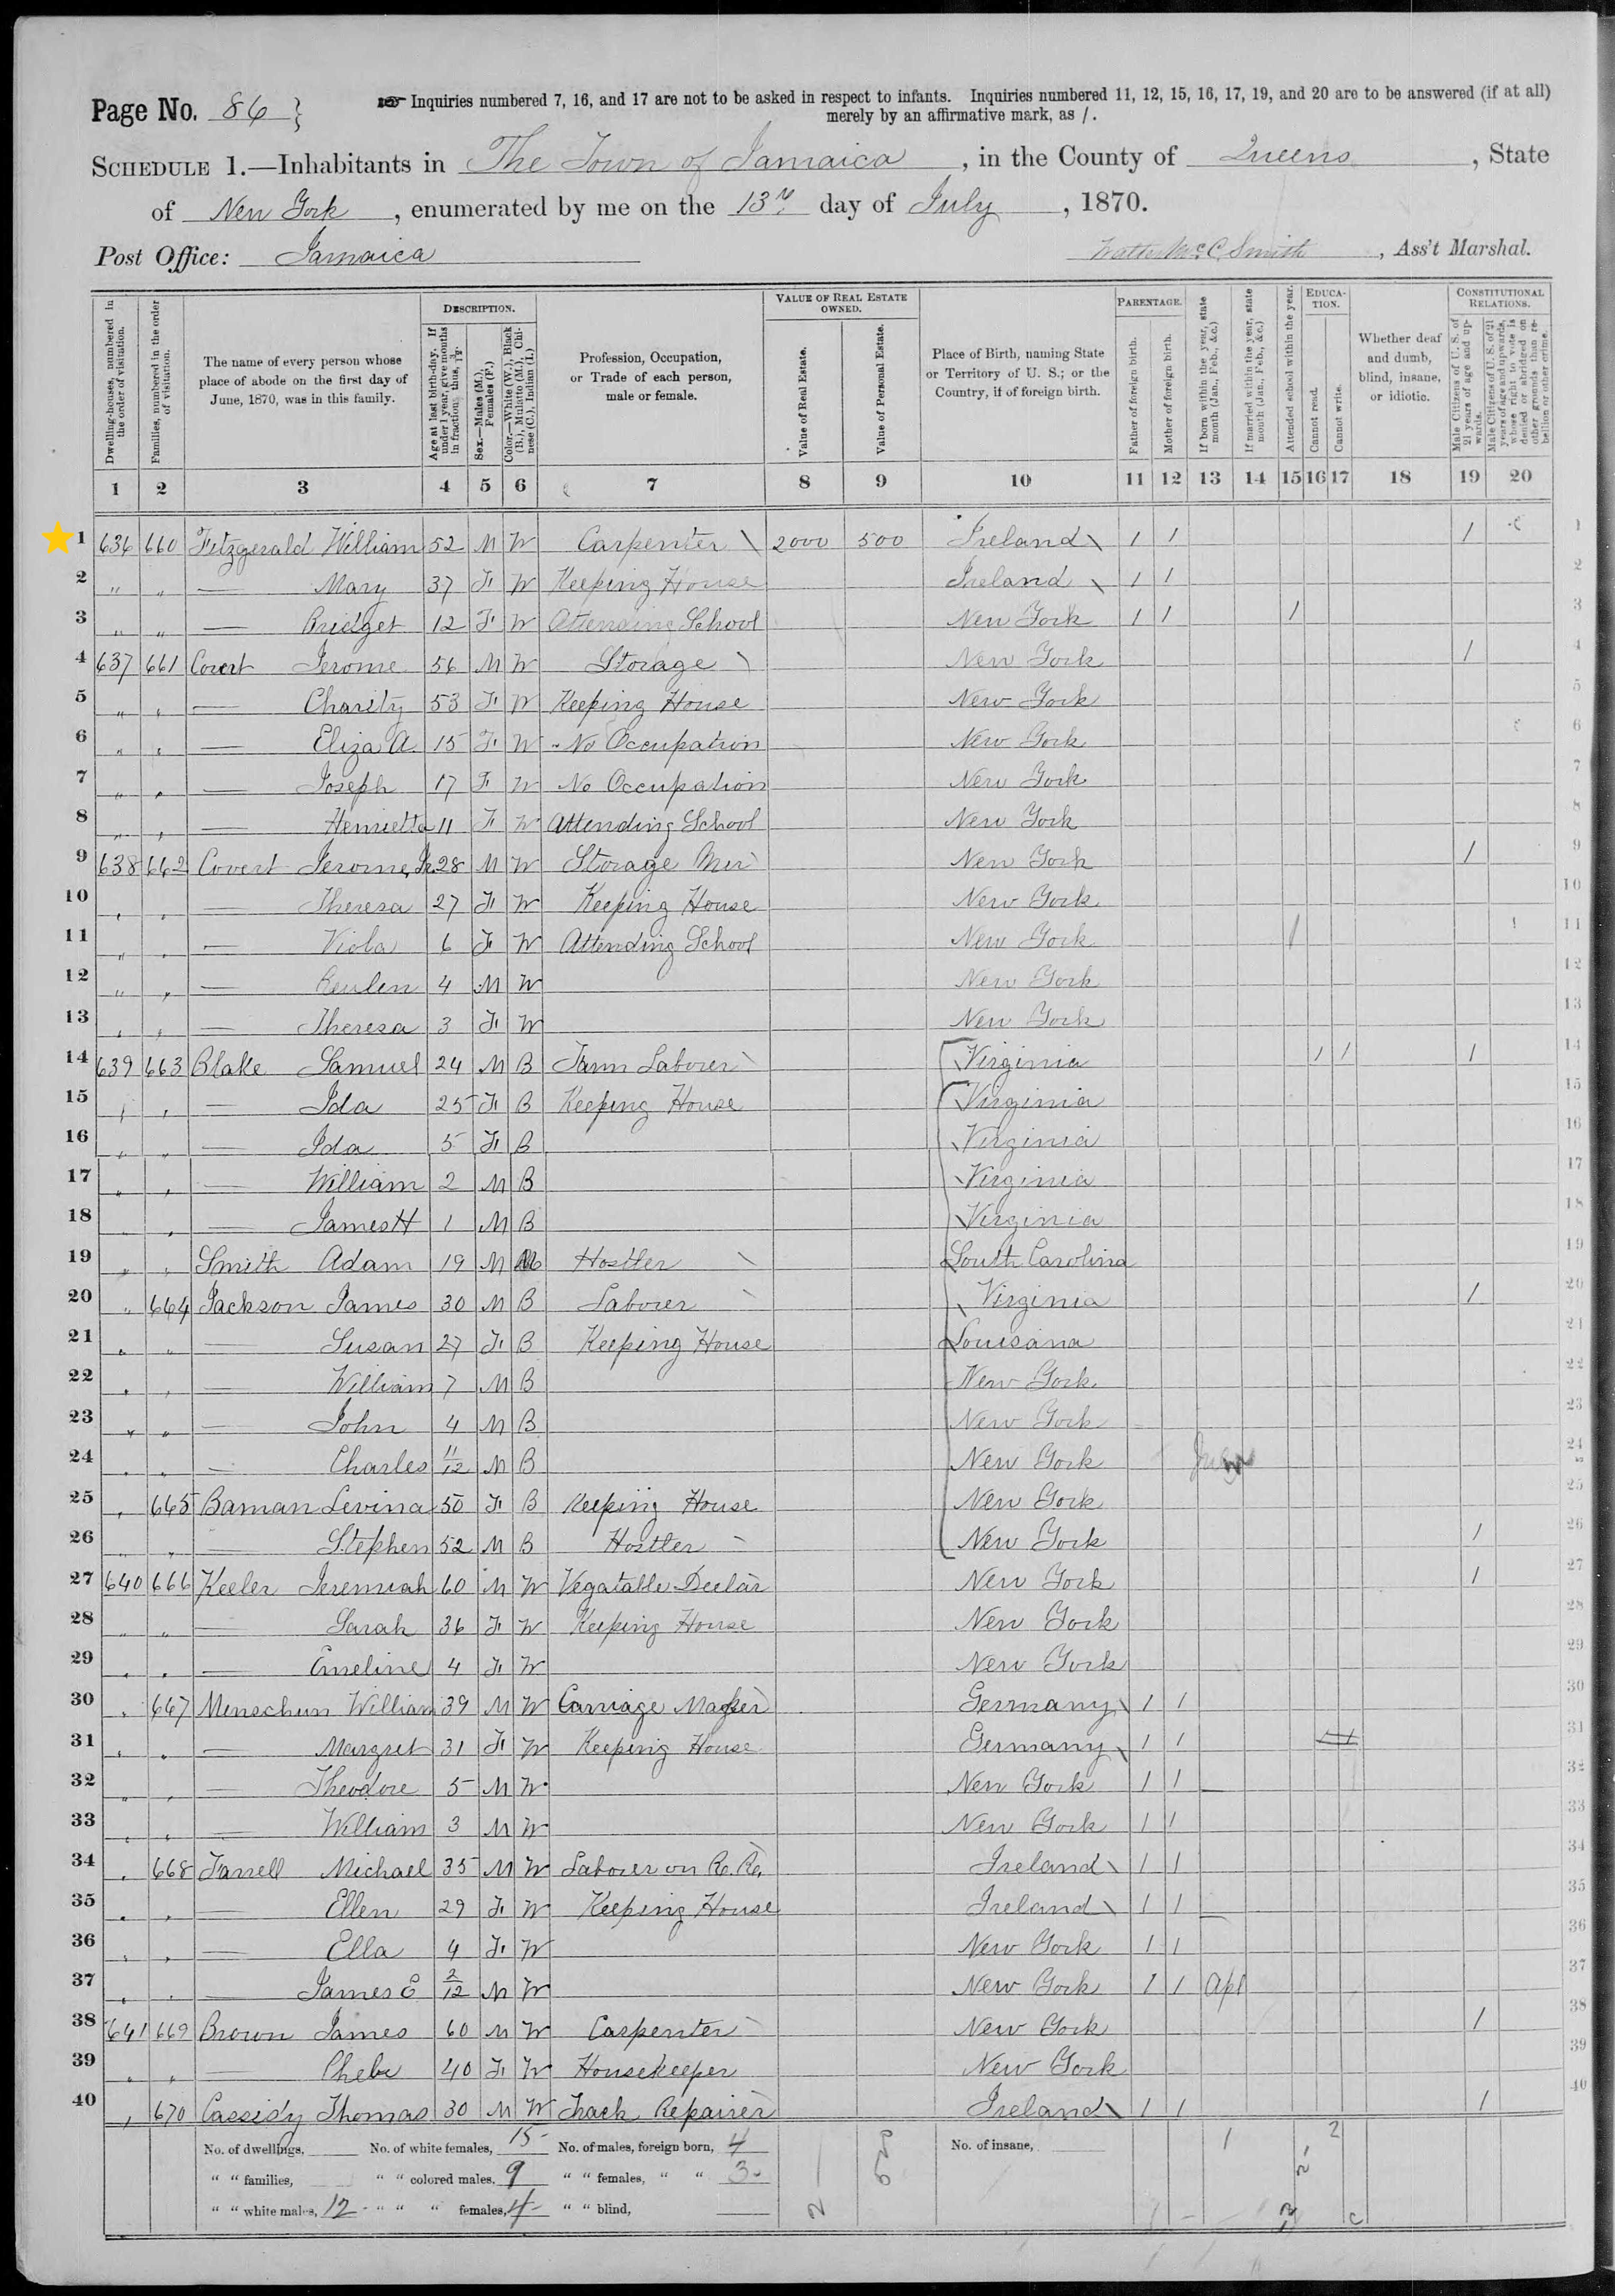 Page No. 86 }
Inquiries numbered 7, 16, and 17 are not to be asked in respect to infants. Inquiries numbered 11, 12, 15, 16, 17, 19, and 20 are to be answered (if at all)
merely by an affirmative mark, as /.
SCHEDULE 1.—Inhabitants in The Town of Jamaica, in the County of Queens, State
of New York, enumerated by me on the 13th day of July, 1870.
Post Office: Jamaica Walter McC Smith, Ass't Marshal.
Dwelling-houses, numbered in the order of visitation.
Families, numbered in the order of visitation.
The name of every person whose place of abode on the first day of June, 1870, was in this family.
DESCRIPTION.
Age at last birth-day. If under 1 year, give months in fractions, thus, 3/12.
Sex.—Males (M.), Females (F.)
Color.—White (W.), Black (B.), Mulatto (M.), Chinese (C.), Indian (I.)
Profession, Occupation, or Trade of each person, male or female.
VALUE OF REAL ESTATE OWNED.
Value of Real Estate.
Value of Personal Estate.
Place of Birth, naming State or Territory of U. S.; or the Country, if of foreign birth.
PARENTAGE.
Father of foreign birth.
Mother of foreign birth.
If born within the year, state month (Jan., Feb., &c.)
If married within the year, state month (Jan., Feb., &c.)
Attended school within the year.
EDUCATION.
Cannot read.
Cannot write.
Whether deaf and dumb, blind, insane, or idiotic.
CONSTITUTIONAL RELATIONS.
Male Citizens of U. S. of 21 years of age and upwards.
Male Citizens of U. S. of 21 years of age and upwards, whose right to vote is denied or abridged on other grounds than rebellion or other crime.
1 2 3 4 5 6 7 8 9 10 11 12 13 14 15 16 17 18 19 20
1 636 660 Fitzgerald William 52 M W Carpenter \ 2000 500 Ireland \ 1 1 1 1
2 " " — Mary 37 F W Keeping House Ireland \ 1 1 2
3 " " — Bridget 12 F W Attending School New York 1 1 1 3
4 637 661 Covert Jerome 56 M W Storage \ New York 1 4
5 " " — Charity 53 F W Keeping House New York 5
6 " " — Eliza A. 15 F W No Occupation New York 6
7 " " — Joseph 17 F W No Occupation New York 7
8 " " — Henrietta 11 F W Attending School New York 8
9 638 662 Covert Jerome, Jr. 28 M W Storage New York 1 9
10 " " — Theresa 27 F W Keeping House New York 10
11 " " — Viola 6 F W Attending School New York 1 11
12 " " — Reulen 4 M W New York 12
13 " " — Theresa 3 F W New York 13
14 639 663 Blake Samuel 24 M B Farm Laborer Virginia 1 1 1 14
15 " " — Ida 25 F B Keeping House Virginia 15
16 " " — Ida 5 F B Virginia 16
17 " " — William 2 M B Virginia 17
18 " " — James H 1 M B Virginia 18
19 " " Smith Adam 19 M Hostler \ South Carolina 19
20 " 664 Jackson James 30 M B Laborer Virginia 1 20
21 " " — Susan 27 F B Keeping House Louisana 21
22 " " — William 7 M B New York 22
23 " " — John 4 M B New York 23
24 " " — Charles 11/12 M B New York 24
25 " 665 Baman Levina 50 F B Keeping House New York 25
26 " " — Stephen 52 M B Hostler New York 1 26
27 640 666 Keeler Jeremiah 60 M W Vegatable Dealar New York 1 27
28 " " — Sarah 36 F W Keeping House New York 28
29 " " — Emeline 4 F W New York 29
30 " 667 Menschun William 39 M W Carriage Maker Germany \ 1 1 30
31 " " — Margret 31 F W Keeping House Germany \ 1 1 31
32 " " — Theodore 5 M W New York 1 1 32
33 " " — William 3 M W New York 1 1 33
34 " 668 Farrell Michael 35 M W Laborer on R. R. Ireland \ 1 1 34
35 " " — Ellen 29 F W Keeping House Ireland \ 1 1 35
36 " " — Ella 4 F W New York 1 1 36
37 " " — James E 2/12 M W New York 1 1 Apl 37
38 641 669 Brown James 60 M W Carpenter New York 1 38
39 " " — Phebe 40 F W Housekeeper New York 39
40 " 670 Cassidy Thomas 30 M W Track Repairer Ireland \ 1 1 1 40
No. of dwellings, No. of white females, 15 No. of males, foreign born, 4 No. of insane, 1 2
" " families, " " colored males, 9 " " females, " " 3
" " white males, 12 " " " females, 4 " " blind,